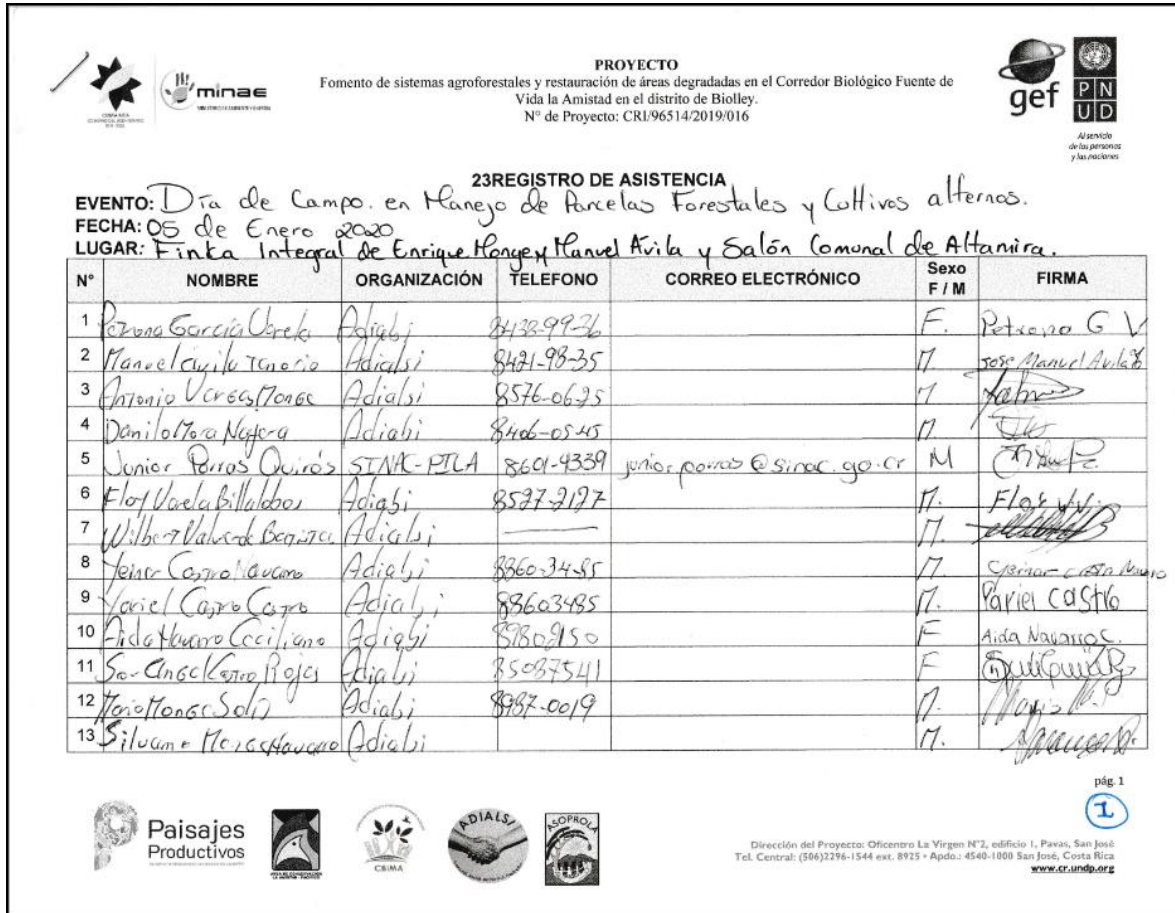 COSTA RICA
minae
MINISTERIO DE AMBIENTE Y ENERGÍA
PROYECTO
Fomento de sistemas agroforestales y restauración de áreas degradadas en el Corredor Biológico Fuente de
Vida la Amistad en el distrito de Biolley.
N° de Proyecto: CRI/96514/2019/016
gef
PN
UD
Al servicio
de las personas
y las naciones
23REGISTRO DE ASISTENCIA
EVENTO: Día de Campo. en Manejo de Parcelas Forestales y Cultivos alternos.
FECHA: 05 de Enero 2020
LUGAR: Finka Integral de Enrique Monge y Manuel Avila y Salón Comunal de Altamira.
N° NOMBRE ORGANIZACIÓN TELEFONO CORREO ELECTRÓNICO Sexo F / M FIRMA
1 García Varela Adialsi 8438-99-36 F. Petrona G V
2 Manuel avila Tenorio Adialsi 8421-98-35 M Jose Manuel Avila
3 Antonio Vargas Monge Adialsi 8576-06-25
4 Danilo Mora Adialsi 8406-05-45 M.
5 Junior Porras Quirós SINAC-PILA 8601-4339 junior.porras@sinac.go.cr M
6 Floy Varela Billalobos Adialsi 8527-2127 M. Floy
7 Wilbert Valverde Adialsi M.
8 Castro Navarro Adialsi 8860-34-85 M.
9 Yariel Castro Castro Adialsi 88603485 M. Yariel castro
10 Aida Navarro Ceciliano Adialsi F Aida Navarro C.
11 Rojas Adialsi 85087541 F
12 Mario Monge Solis Adialsi 8987-0019 M. Mario
13 Navarro Adialsi M.
pág. 1
1
Paisajes
Productivos
CBIMA
ADIALSI
ASOPROLA
Dirección del Proyecto: Oficentro La Virgen N°2, edificio I, Pavas, San José
Tel. Central: (506)2296-1544 ext. 8925 • Apdo.: 4540-1000 San José, Costa Rica
www.cr.undp.org